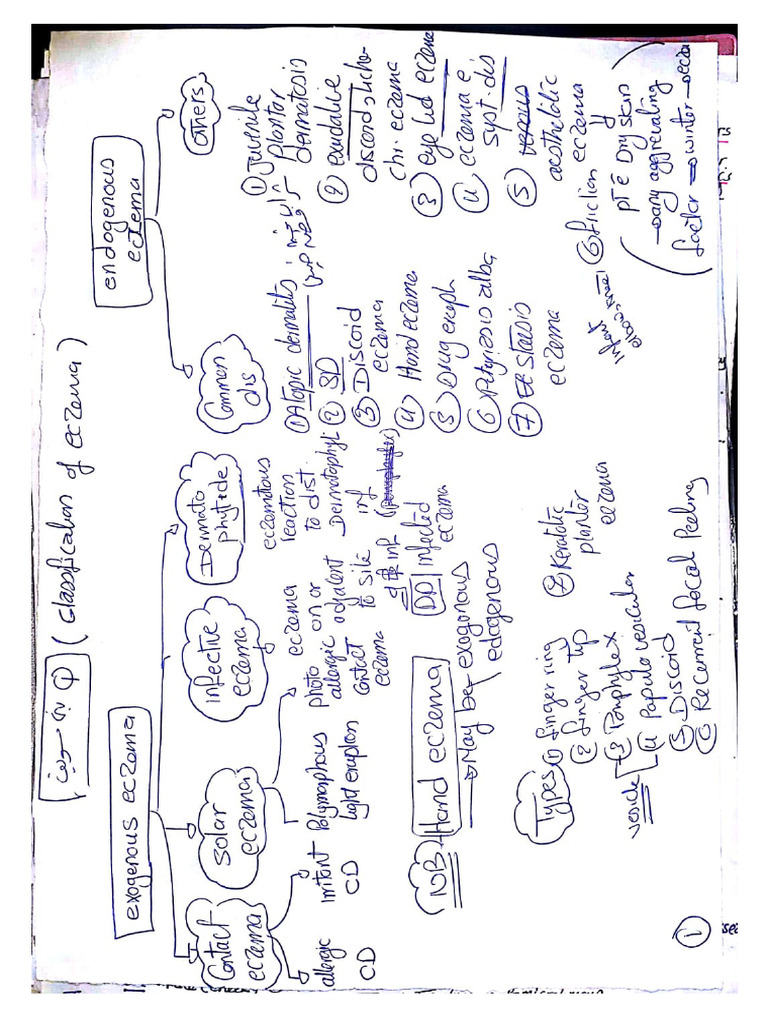 ① (Classification of eczema)
exogenous eczema
Contact
eczema
allergic
CD
irritant
CD
Solar
eczema
Polymorphous
light eruption
photo
allergic
contact
eczema
infective
eczema
eczema
on or
adjacent
to site
of inf
DD infected
eczema
Dermato
phytide
eczematous
reaction
to dist
Dermatophyt
inf
endogenous
eczema
Common
dis
① Atopic dermatitis
② SD
③ Discoid
eczema
④ Hand eczema
⑤ Drug
⑥ Pityriasis alba
⑦ stasis
eczema
others
① Juvenile
plantar
dermatosis
② exudative
discord, liche-
chr. eczema
③ eye lid eczema
④ eczema e
syst. dis
⑤ venous
eczema
⑥ friction
pt e Dry skin
→ any aggrevating
factor → winter
NB Hand eczema
→ May be exogonous
edogenous
Types ① finger ring
② finger tip
③ Pomphylex
④ Papulo vesicular
vesicle
⑤ Discoid
⑥ Recurrent focal Peeling
⑦ Keratotic
planter
eczema
①